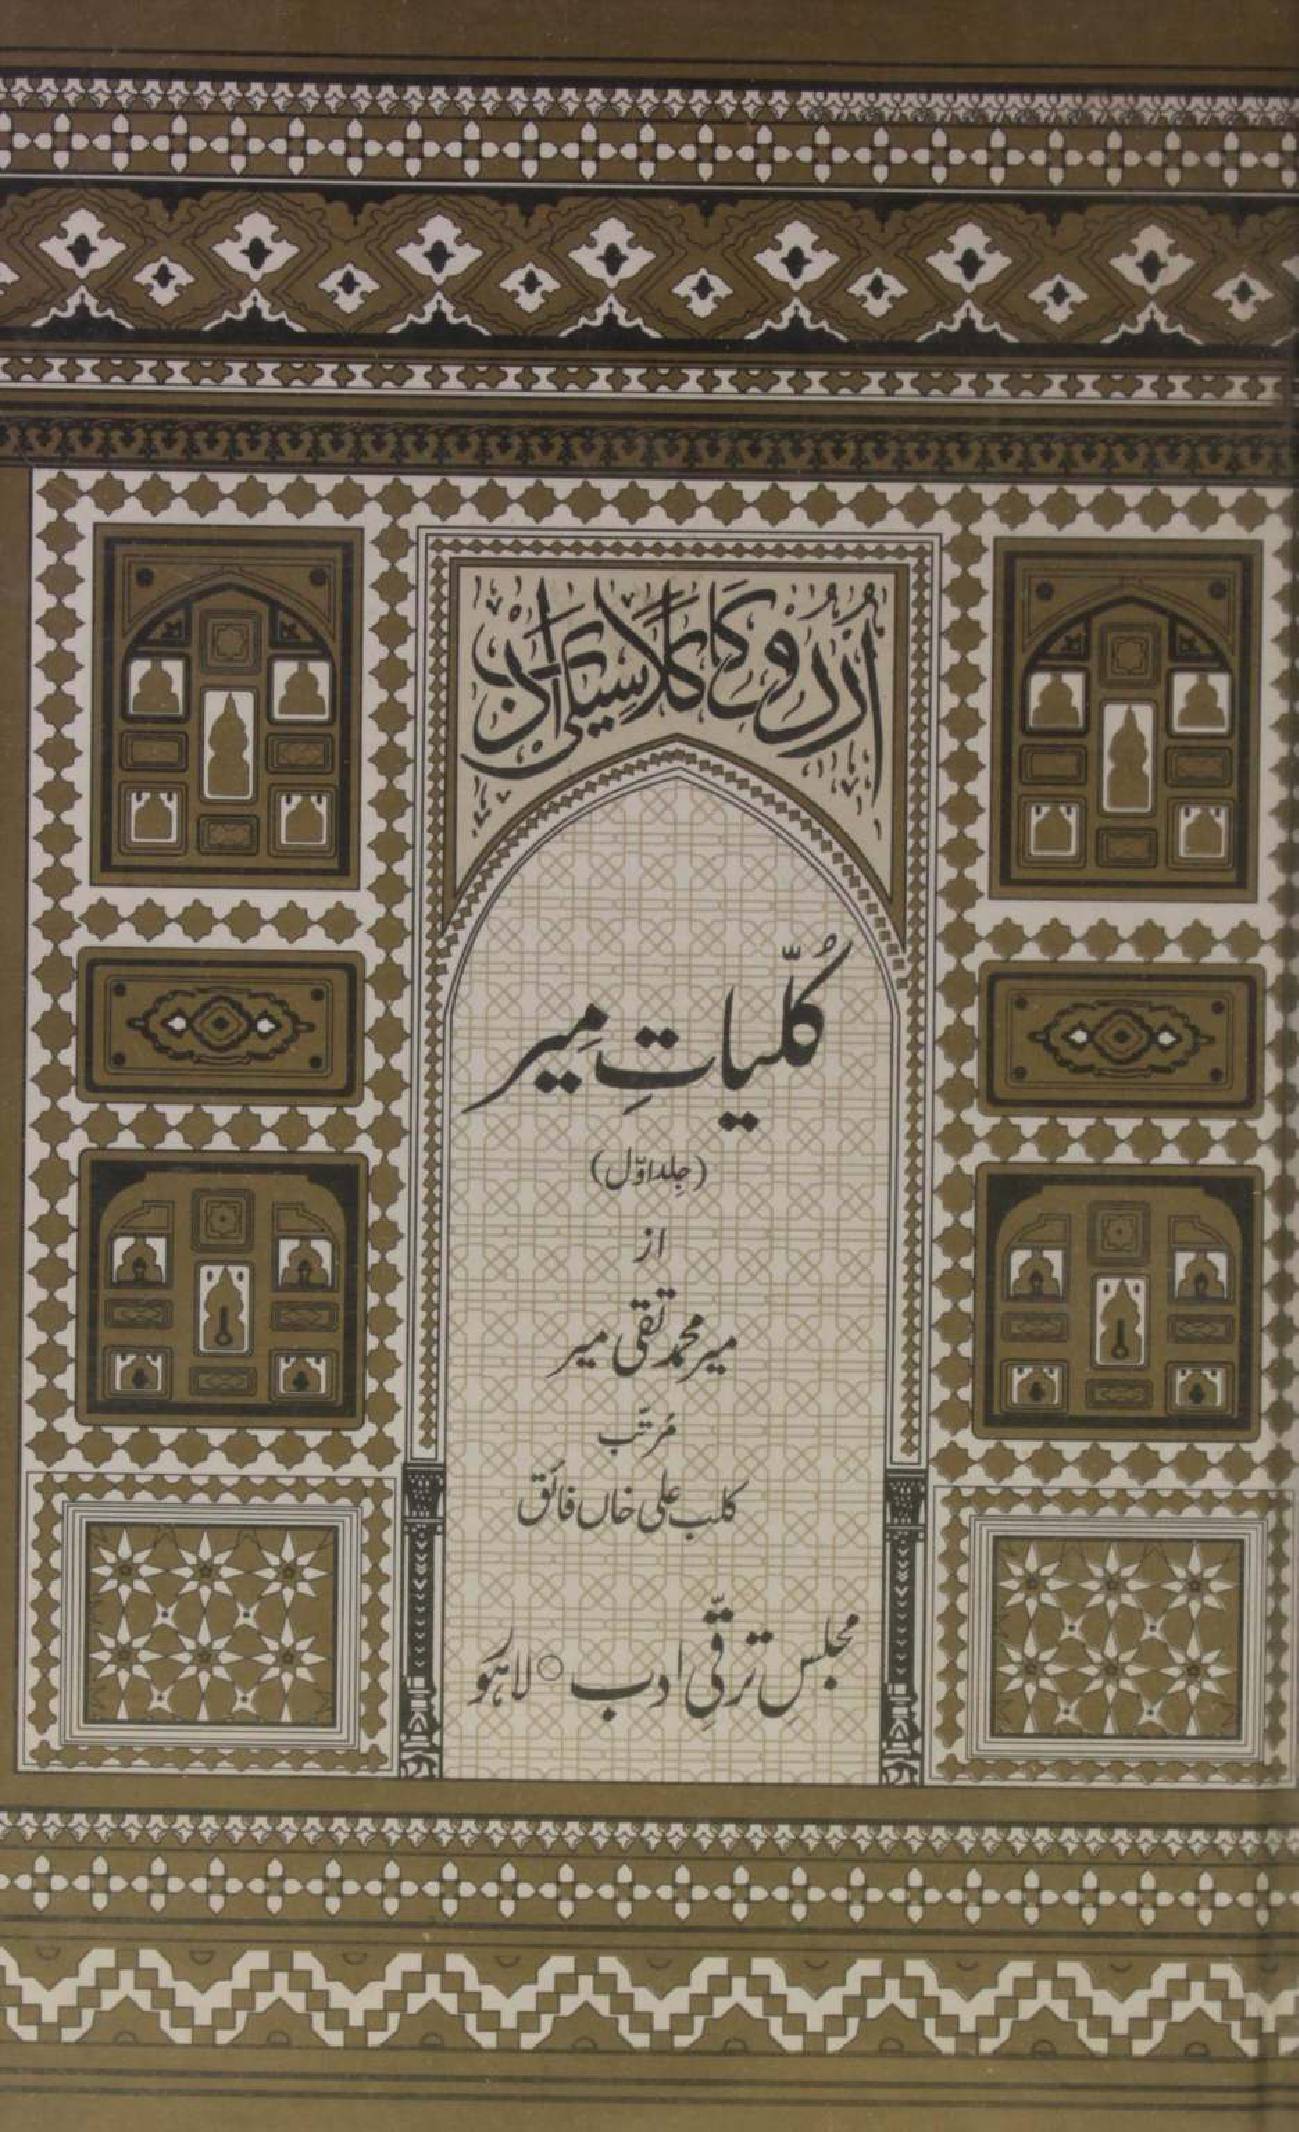 اُردُو کا کلاسیکی ادب
کُلّیاتِ مِیر
(جِلد اوّل)
از
میر محمد تقی میر
مُرتّبہ
کلب علی خاں فائق
مجلسِ ترقیِ ادب ○ لاہور